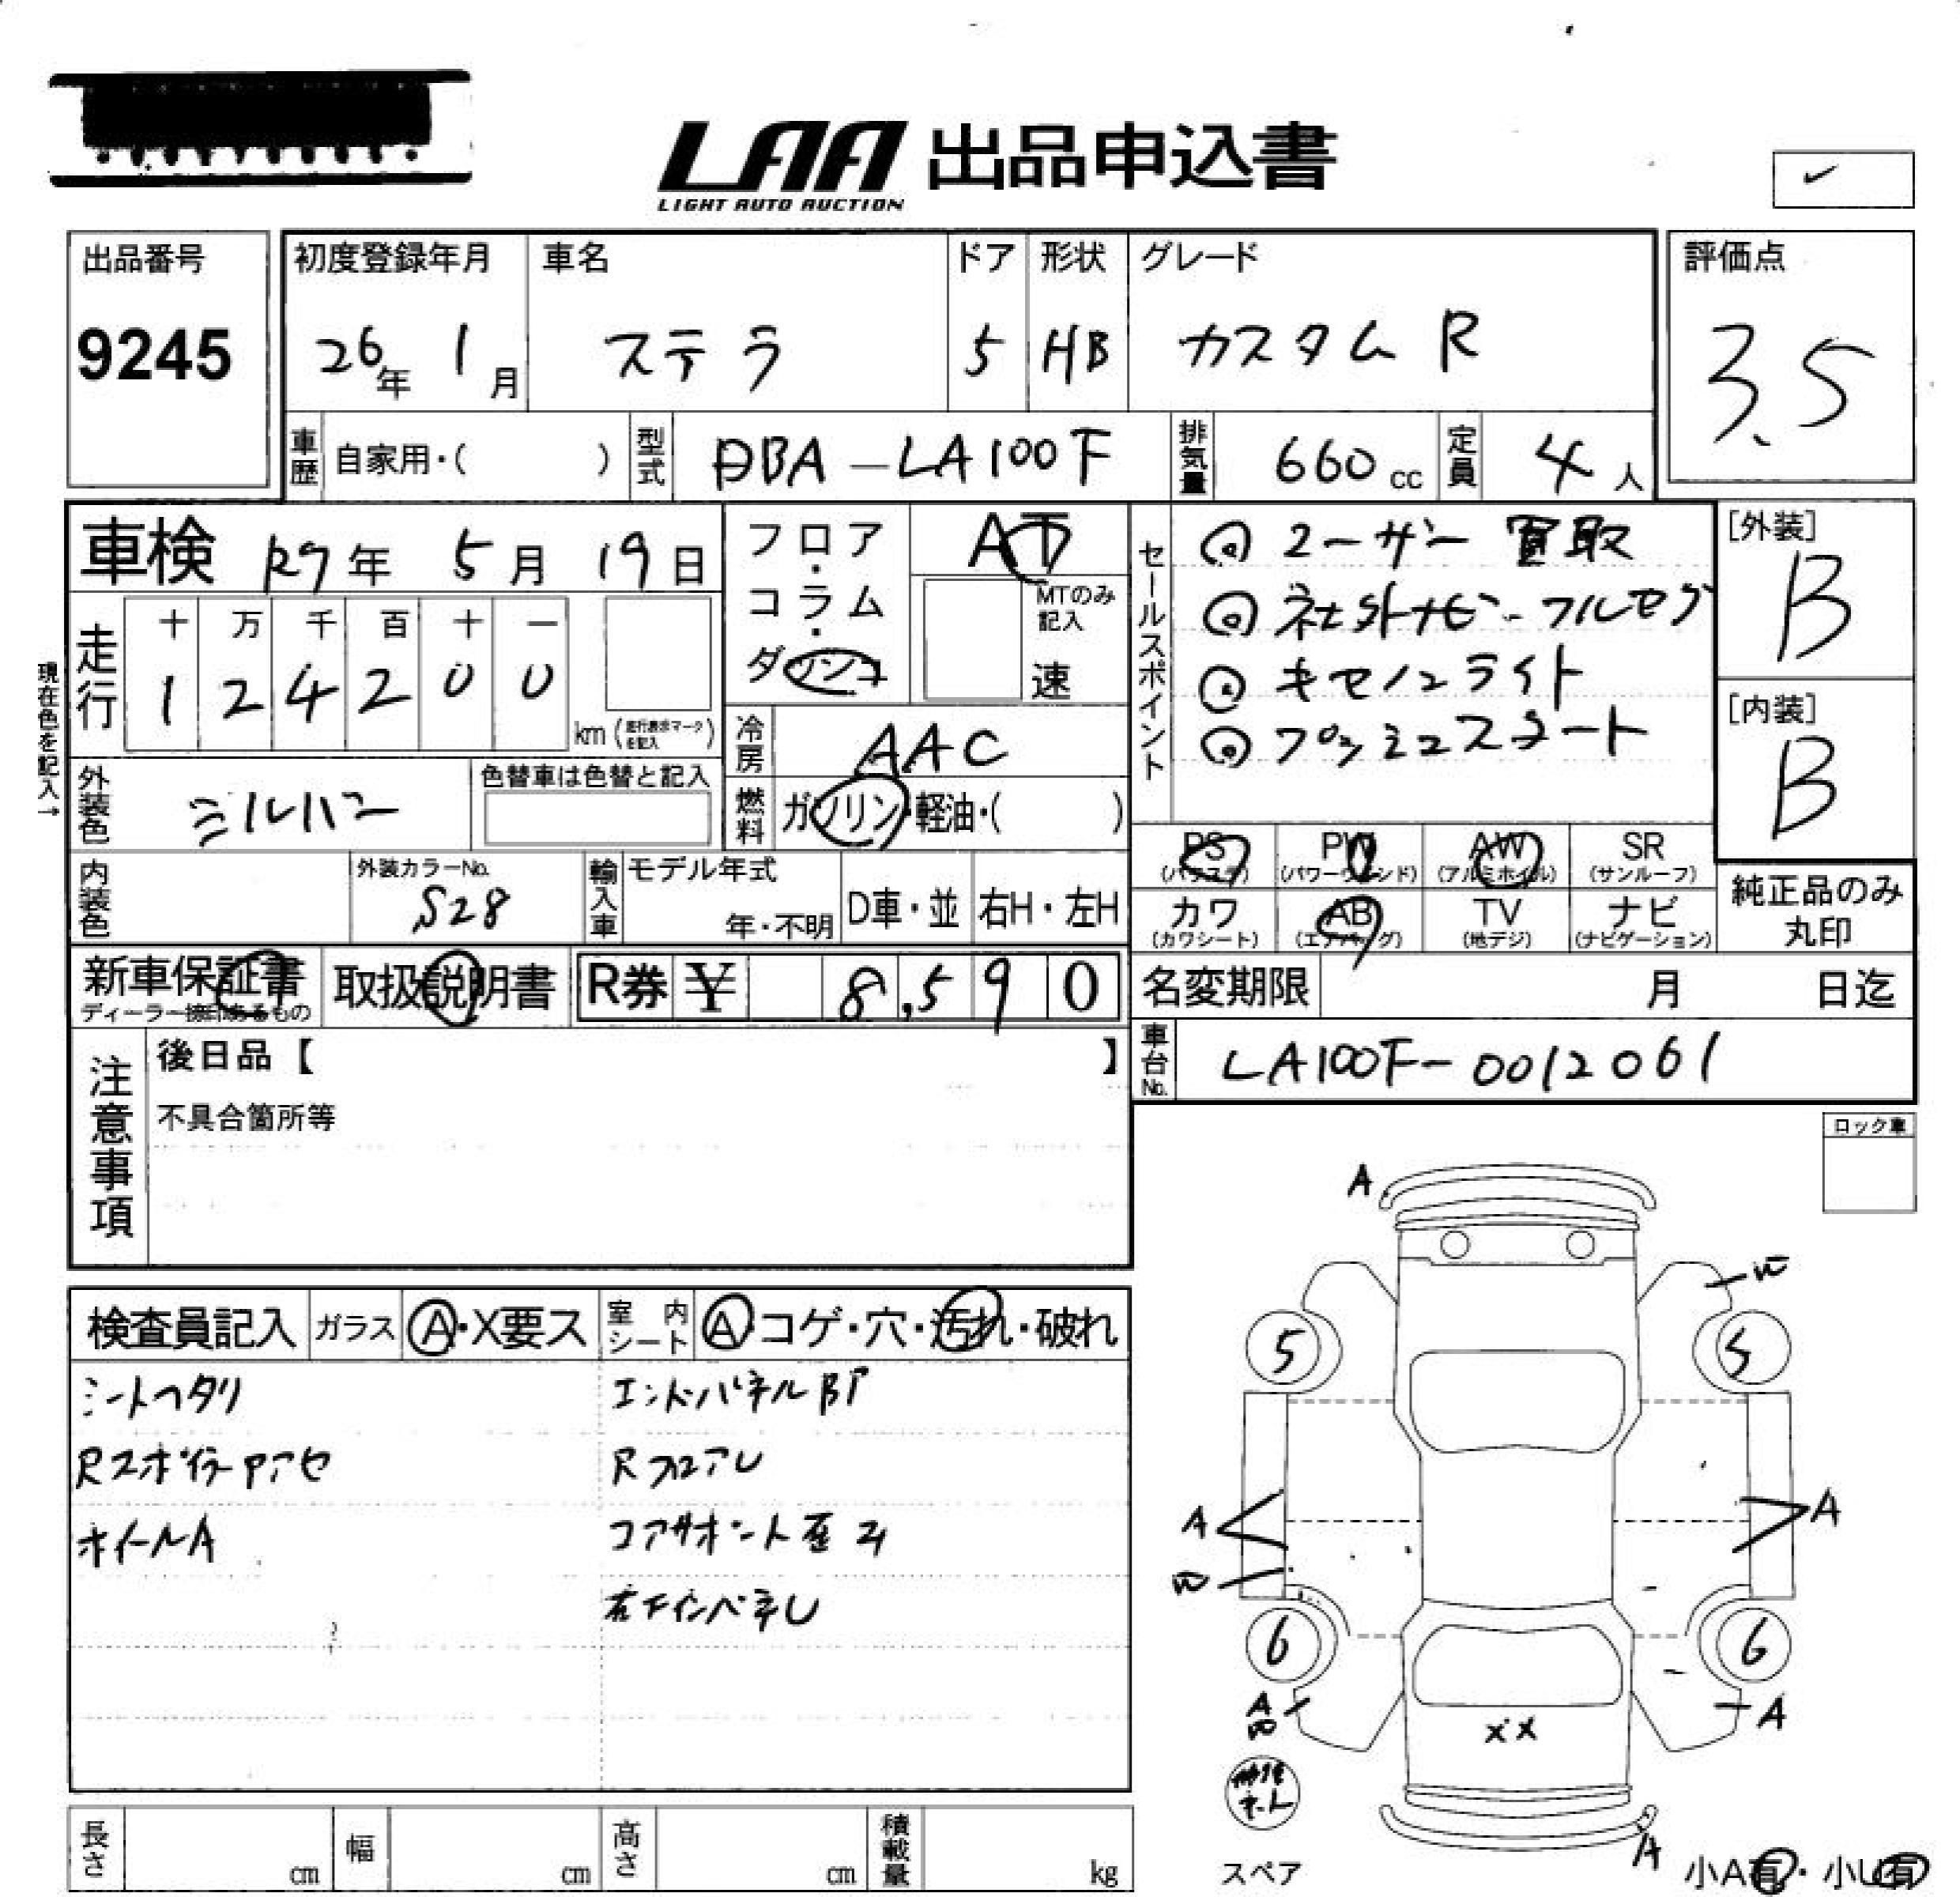 LAA 出品申込書
LIGHT AUTO AUCTION
出品番号
9245
初度登録年月
26年 1月
車名
ステラ
ドア
5
形状
HB
グレード
カスタム R
評価点
3.5
車歴
自家用・( )
型式
DBA-LA100F
排気量
660 cc
定員
4人
車検 R7年 5月 19日
フロア・コラム・ダ
AT
MTのみ記入
速
セールスポイント
ユーザー買取
社外ナビ・フルセグ
キセノンライト
プッシュスタート
[外装]
B
[内装]
B
現在色を記入→
走行
十 万 千 百 十 一
1 2 4 2 0 0
km (走行表示マークを記入)
冷房
AAC
外装色
シルバー
色替車は色替と記入
燃料
ガソリン・軽油・( )
内装色
外装カラーNo.
S28
輸入車
モデル年式
年・不明
D車・並
右H・左H
PS
(パワステ)
PW
(パワーウィンド)
AW
(アルミホイル)
SR
(サンルーフ)
カワ
(カワシート)
AB
(エアバッグ)
TV
(地デジ)
ナビ
(ナビゲーション)
純正品のみ
丸印
新車保証書
ディーラー捺印あるもの
取扱説明書
R券 ¥ 8,590
名変期限 月 日迄
車台No.
LA100F-0012061
注意事項
後日品【 】
不具合箇所等
ロック車
検査員記入
ガラス
A・X要ス
室内シート
A・コゲ・穴・汚れ・破れ
シートヘタリ
エンドパネルBP
RスポイラーPアセ
RフロアU
ホイールA
コアサポート歪
右下インパネU
A
5
5
A
A
6
6
A
A
XX
A
スペア
小A有・小U有
長さ
cm
幅
cm
高さ
cm
積載量
kg